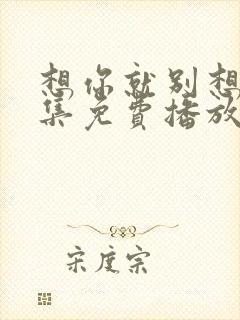 想你就别想
集免费播放
宋度宗